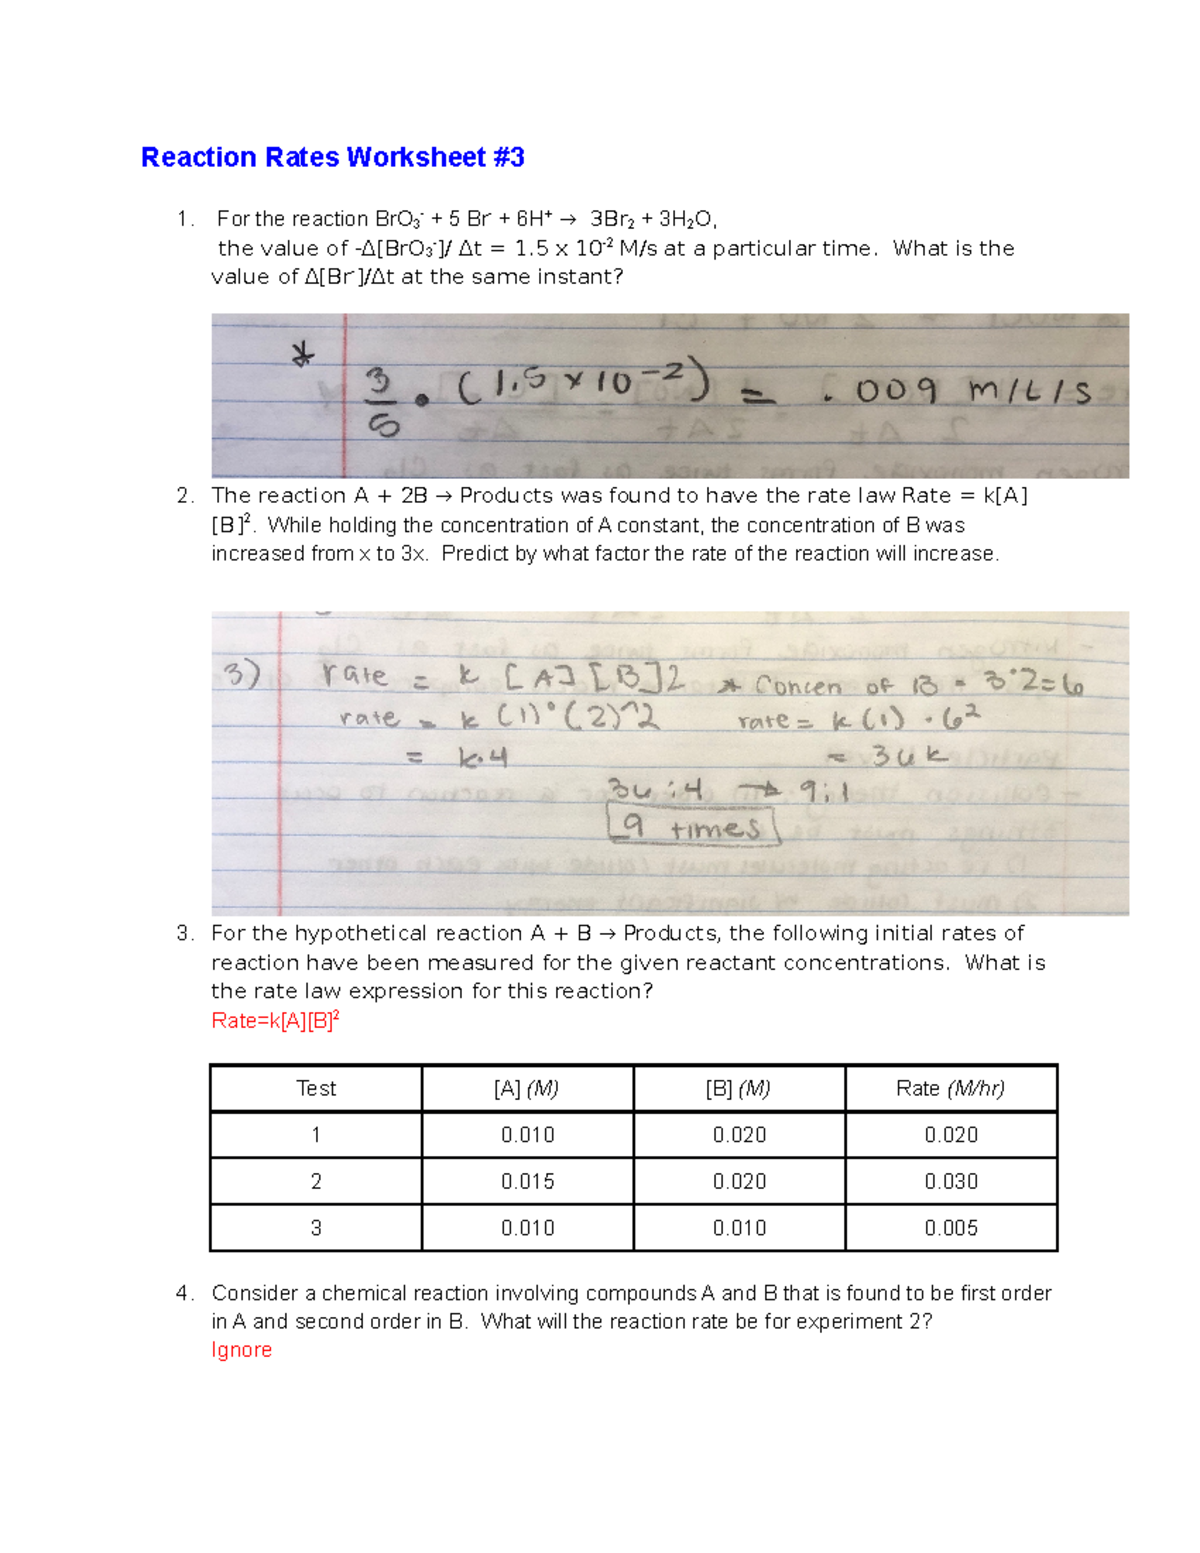 Reaction Rates Worksheet #3
1. For the reaction BrO₃⁻ + 5 Br⁻ + 6H⁺ → 3Br₂ + 3H₂O,
the value of -Δ[BrO₃⁻]/ Δt = 1.5 x 10⁻² M/s at a particular time. What is the
value of Δ[Br⁻]/Δt at the same instant?
* 3/5 • (1.5 x 10⁻²) = .009 m/L/s
2. The reaction A + 2B → Products was found to have the rate law Rate = k[A]
[B]². While holding the concentration of A constant, the concentration of B was
increased from x to 3x. Predict by what factor the rate of the reaction will increase.
3) rate = k [A] [B]2 * Concen of B = 3·2=6
rate = k (1)·(2)^2 rate = k (1) · 6²
= k·4 = 36k
36:4 → 9:1
9 times
3. For the hypothetical reaction A + B → Products, the following initial rates of
reaction have been measured for the given reactant concentrations. What is
the rate law expression for this reaction?
Rate=k[A][B]²
Test [A] (M) [B] (M) Rate (M/hr)
1 0.010 0.020 0.020
2 0.015 0.020 0.030
3 0.010 0.010 0.005
4. Consider a chemical reaction involving compounds A and B that is found to be first order
in A and second order in B. What will the reaction rate be for experiment 2?
Ignore